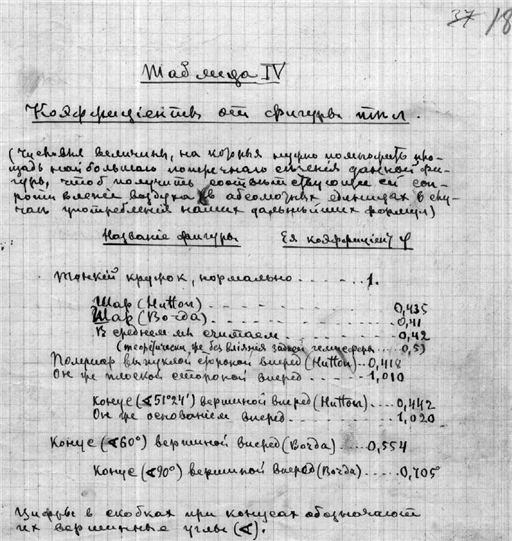 37 18
Таблица IV
Коэффиціенты от фигуры тѣл.
(Числовыя величины, на которыя нужно помножить пло-
щадь наибольшаго поперечнаго сѣченія данной фи-
гуры, чтоб получить соотвѣтствующее ей соп-
ротивленіе воздуха в абсолютных единицах в слу-
чаѣ употребленія наших дальнѣйших формул)
Названіе фигуры Ея коэффиціент φ
Тонкій кружок, нормально ...... 1.
Шар (Hutton) ...... 0,435
Шар (Борда) ...... 0,41
В среднем мы считаем ...... 0,42
(теоретически же без вліянія задней гемисферы ... 0,5)
Полушар выпуклой стороной вперед (Hutton) ... 0,418
Он же плоской стороной вперед ...... 1,010
Конус (∢51°24') вершиной вперед (Hutton) ... 0,442
Он же основаніем вперед ...... 1,020
Конус (∢60°) вершиной вперед (Борда) ... 0,554
Конус (∢90°) вершиной вперед (Борда) ... 0,705
Цифры в скобках при конусах обозначают
их вершинные углы (∢).